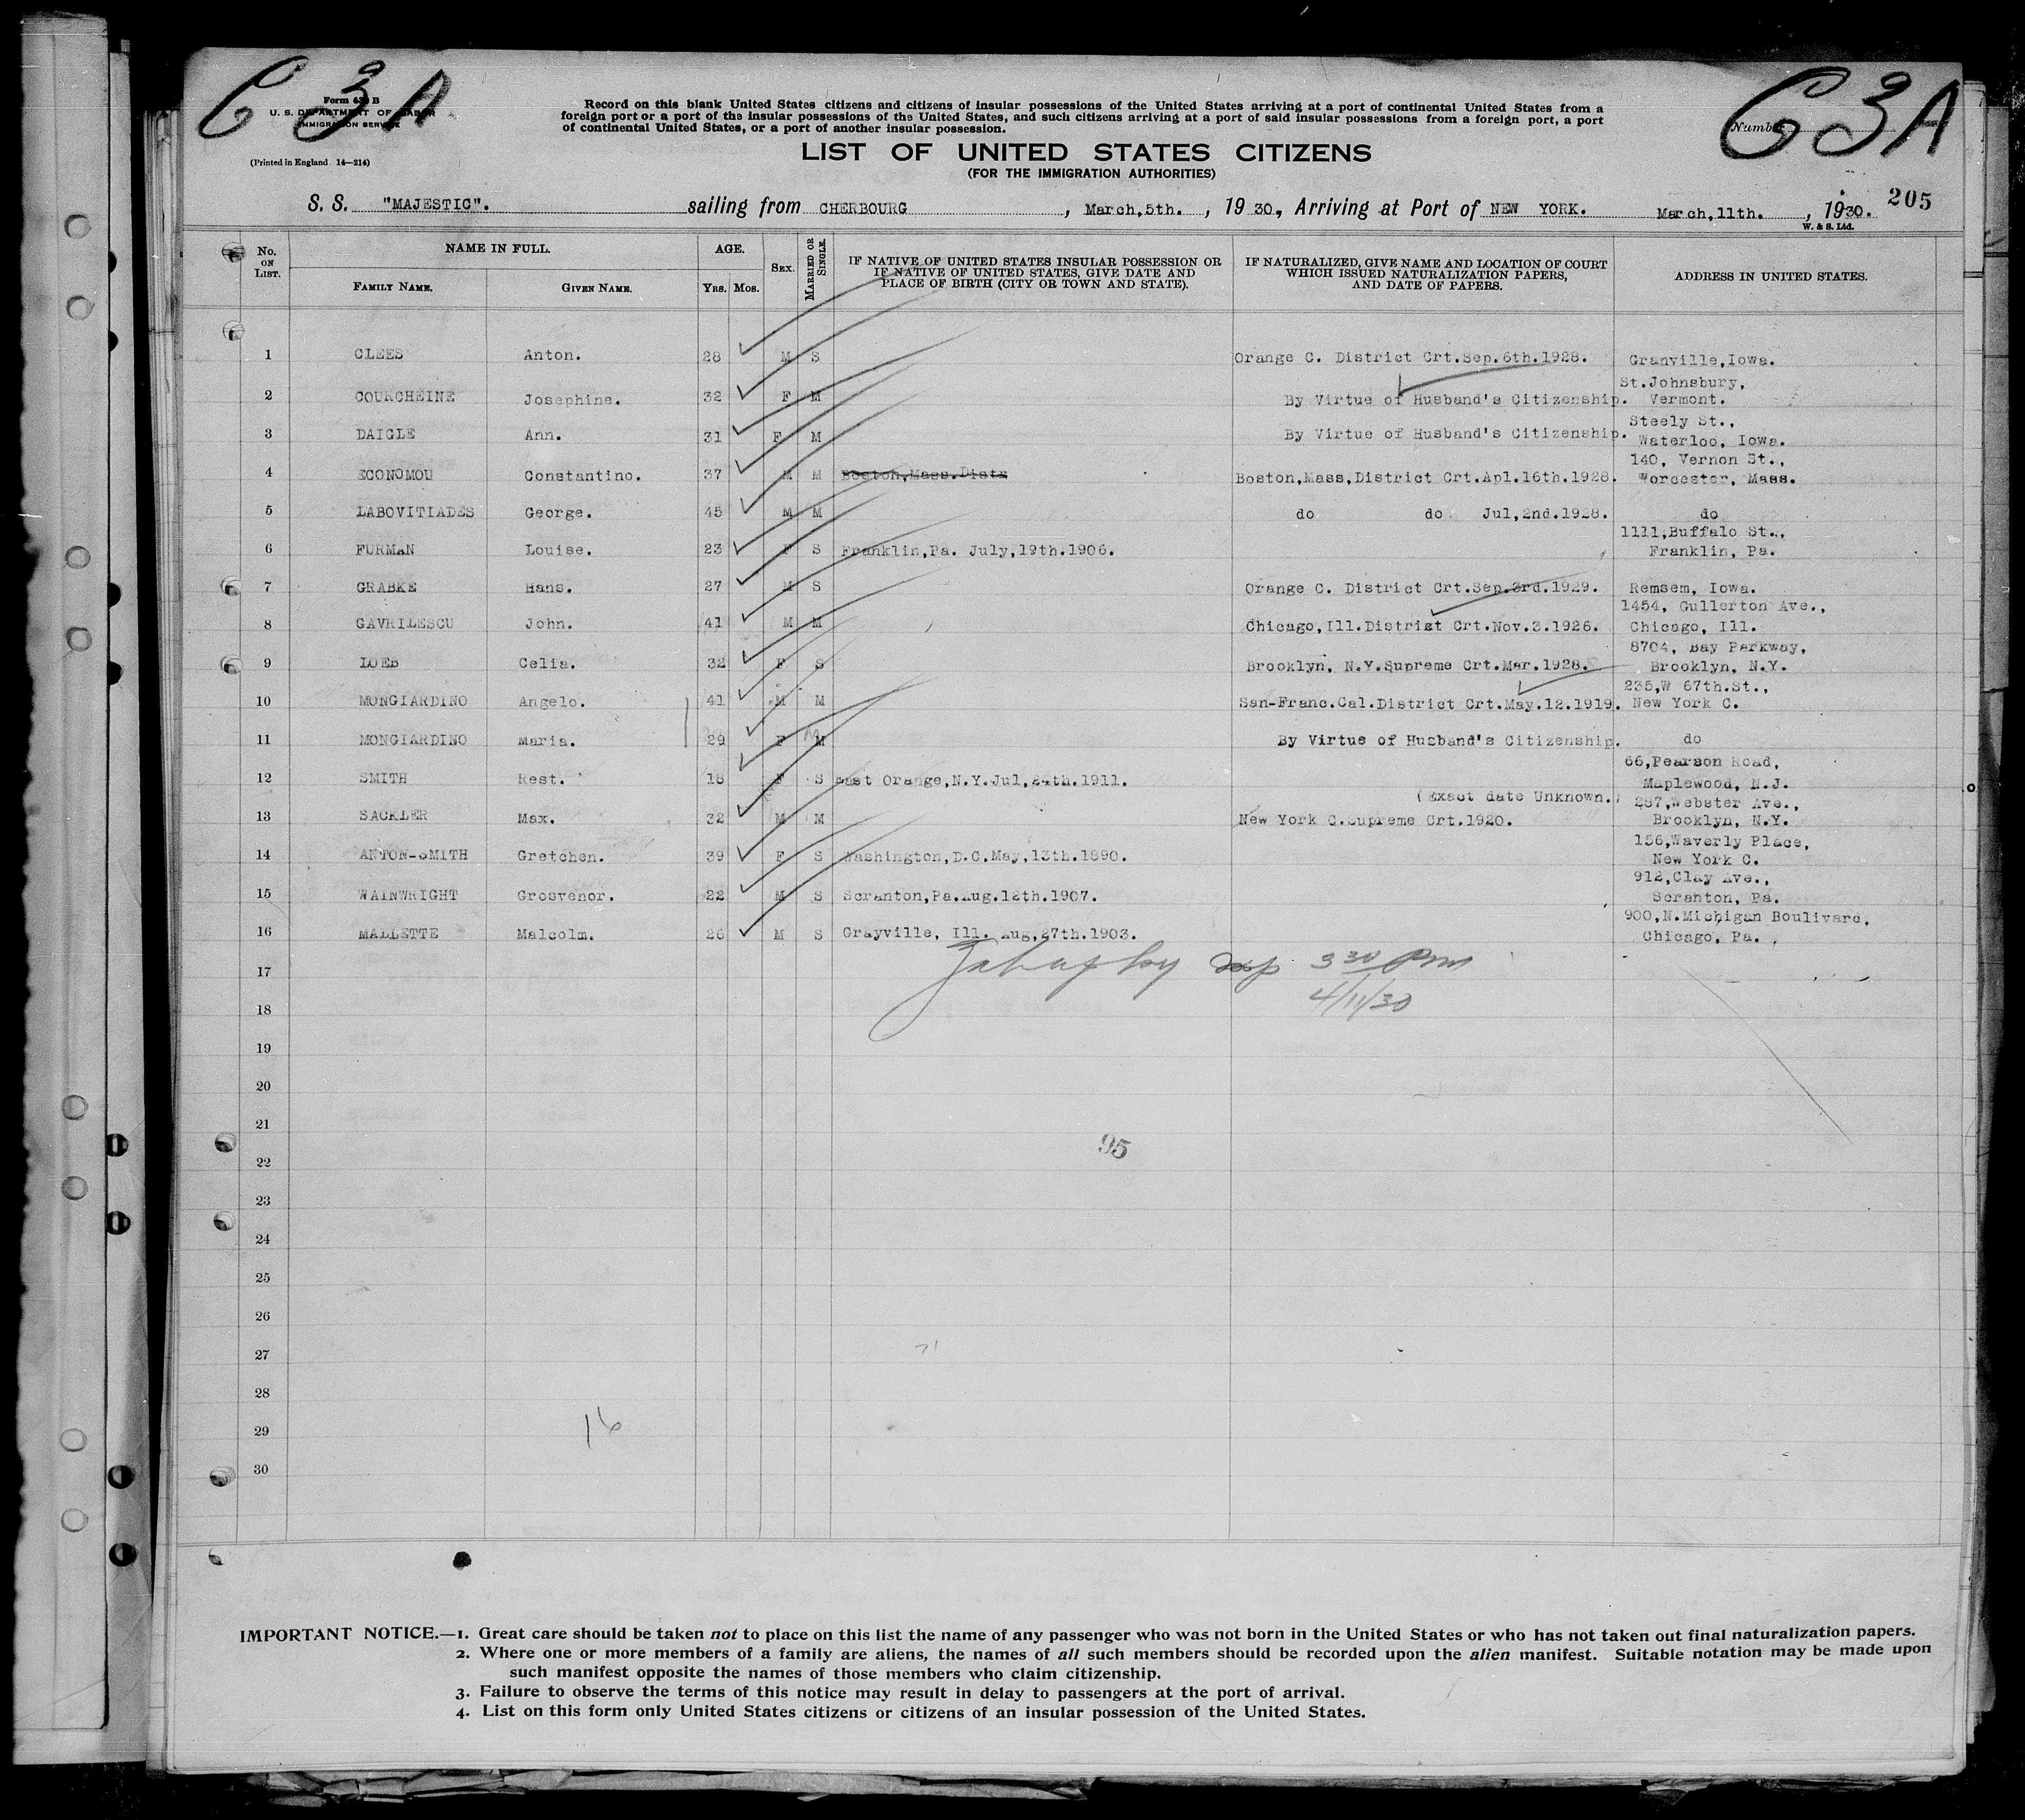 C 3 A
C 3 A
Form 630 B
U. S. DEPARTMENT OF LABOR
IMMIGRATION SERVICE
(Printed in England 14—214)
Record on this blank United States citizens and citizens of insular possessions of the United States arriving at a port of continental United States from a
foreign port or a port of the insular possessions of the United States, and such citizens arriving at a port of said insular possessions from a foreign port, a port
of continental United States, or a port of another insular possession.
Number
LIST OF UNITED STATES CITIZENS
(FOR THE IMMIGRATION AUTHORITIES)
205
S. S. "MAJESTIC". sailing from CHERBOURG, March,5th., 19 30., Arriving at Port of NEW YORK. March,11th., 1930.
W. & S. Ltd.
No. ON LIST. NAME IN FULL. AGE. SEX. MARRIED OR SINGLE. IF NATIVE OF UNITED STATES INSULAR POSSESSION OR IF NATIVE OF UNITED STATES, GIVE DATE AND PLACE OF BIRTH (CITY OR TOWN AND STATE). IF NATURALIZED, GIVE NAME AND LOCATION OF COURT WHICH ISSUED NATURALIZATION PAPERS, AND DATE OF PAPERS. ADDRESS IN UNITED STATES.
FAMILY NAME. GIVEN NAME. YRS. MOS.
1 CLEES Anton. 28 M S Orange C. District Crt.Sep.6th.1928. Granville,Iowa.
2 COURCHEINE Josephine. 32 F M By Virtue of Husband's Citizenship. St.Johnsbury, Vermont.
3 DAIGLE Ann. 31 F M By Virtue of Husband's Citizenship. Steely St., Waterloo, Iowa.
4 ECONOMOU Constantino. 37 M M Boston,Mass.Dist Boston,Mass,District Crt.Apl.16th.1928. 140, Vernon St., Worcester, Mass.
5 LABOVITIADES George. 45 M M do do Jul,2nd.1928. do
6 FURMAN Louise. 23 F S Franklin,Pa. July,19th.1906. 1111,Buffalo St., Franklin, Pa.
7 GRABKE Hans. 27 M S Orange C. District Crt.Sep.3rd.1929. Remsem, Iowa.
8 GAVRILESCU John. 41 M M Chicago,Ill.District Crt.Nov.3.1926. 1454, Gullerton Ave., Chicago, Ill.
9 LOEB Celia. 32 F S Brooklyn, N.Y.Supreme Crt.Mar.1928. 8704, Bay Parkway, Brooklyn, N.Y.
10 MONGIARDINO Angelo. 41 M M San-Franc.Cal.District Crt.May.12.1919. 235,W 67th.St., New York C.
11 MONGIARDINO Maria. 29 F M By Virtue of Husband's Citizenship. do
12 SMITH Rest. 18 F S East Orange,N.Y.Jul,24th.1911. 66,Pearson Road, Maplewood, N.J.
13 SACKLER Max. 32 M M (Exact date Unknown.) New York C.Supreme Crt.1920. 287,Webster Ave., Brooklyn, N.Y.
14 ANTON-SMITH Gretchen. 39 F S Washington,D.C.May,13th.1890. 156,Waverly Place, New York C.
15 WAINWRIGHT Grosvenor. 22 M S Scranton,Pa.Aug.12th.1907. 912,Clay Ave., Scranton, Pa.
16 MALLETTE Malcolm. 26 M S Grayville, Ill. Aug,27th.1903. 900,N.Michigan Boulivard, Chicago, Pa.
17 by 3 30 Pm
4/11/30
18
19
20
21
95
22
23
24
25
26
27
28
29
16
30
IMPORTANT NOTICE.—1. Great care should be taken not to place on this list the name of any passenger who was not born in the United States or who has not taken out final naturalization papers.
2. Where one or more members of a family are aliens, the names of all such members should be recorded upon the alien manifest. Suitable notation may be made upon
such manifest opposite the names of those members who claim citizenship.
3. Failure to observe the terms of this notice may result in delay to passengers at the port of arrival.
4. List on this form only United States citizens or citizens of an insular possession of the United States.